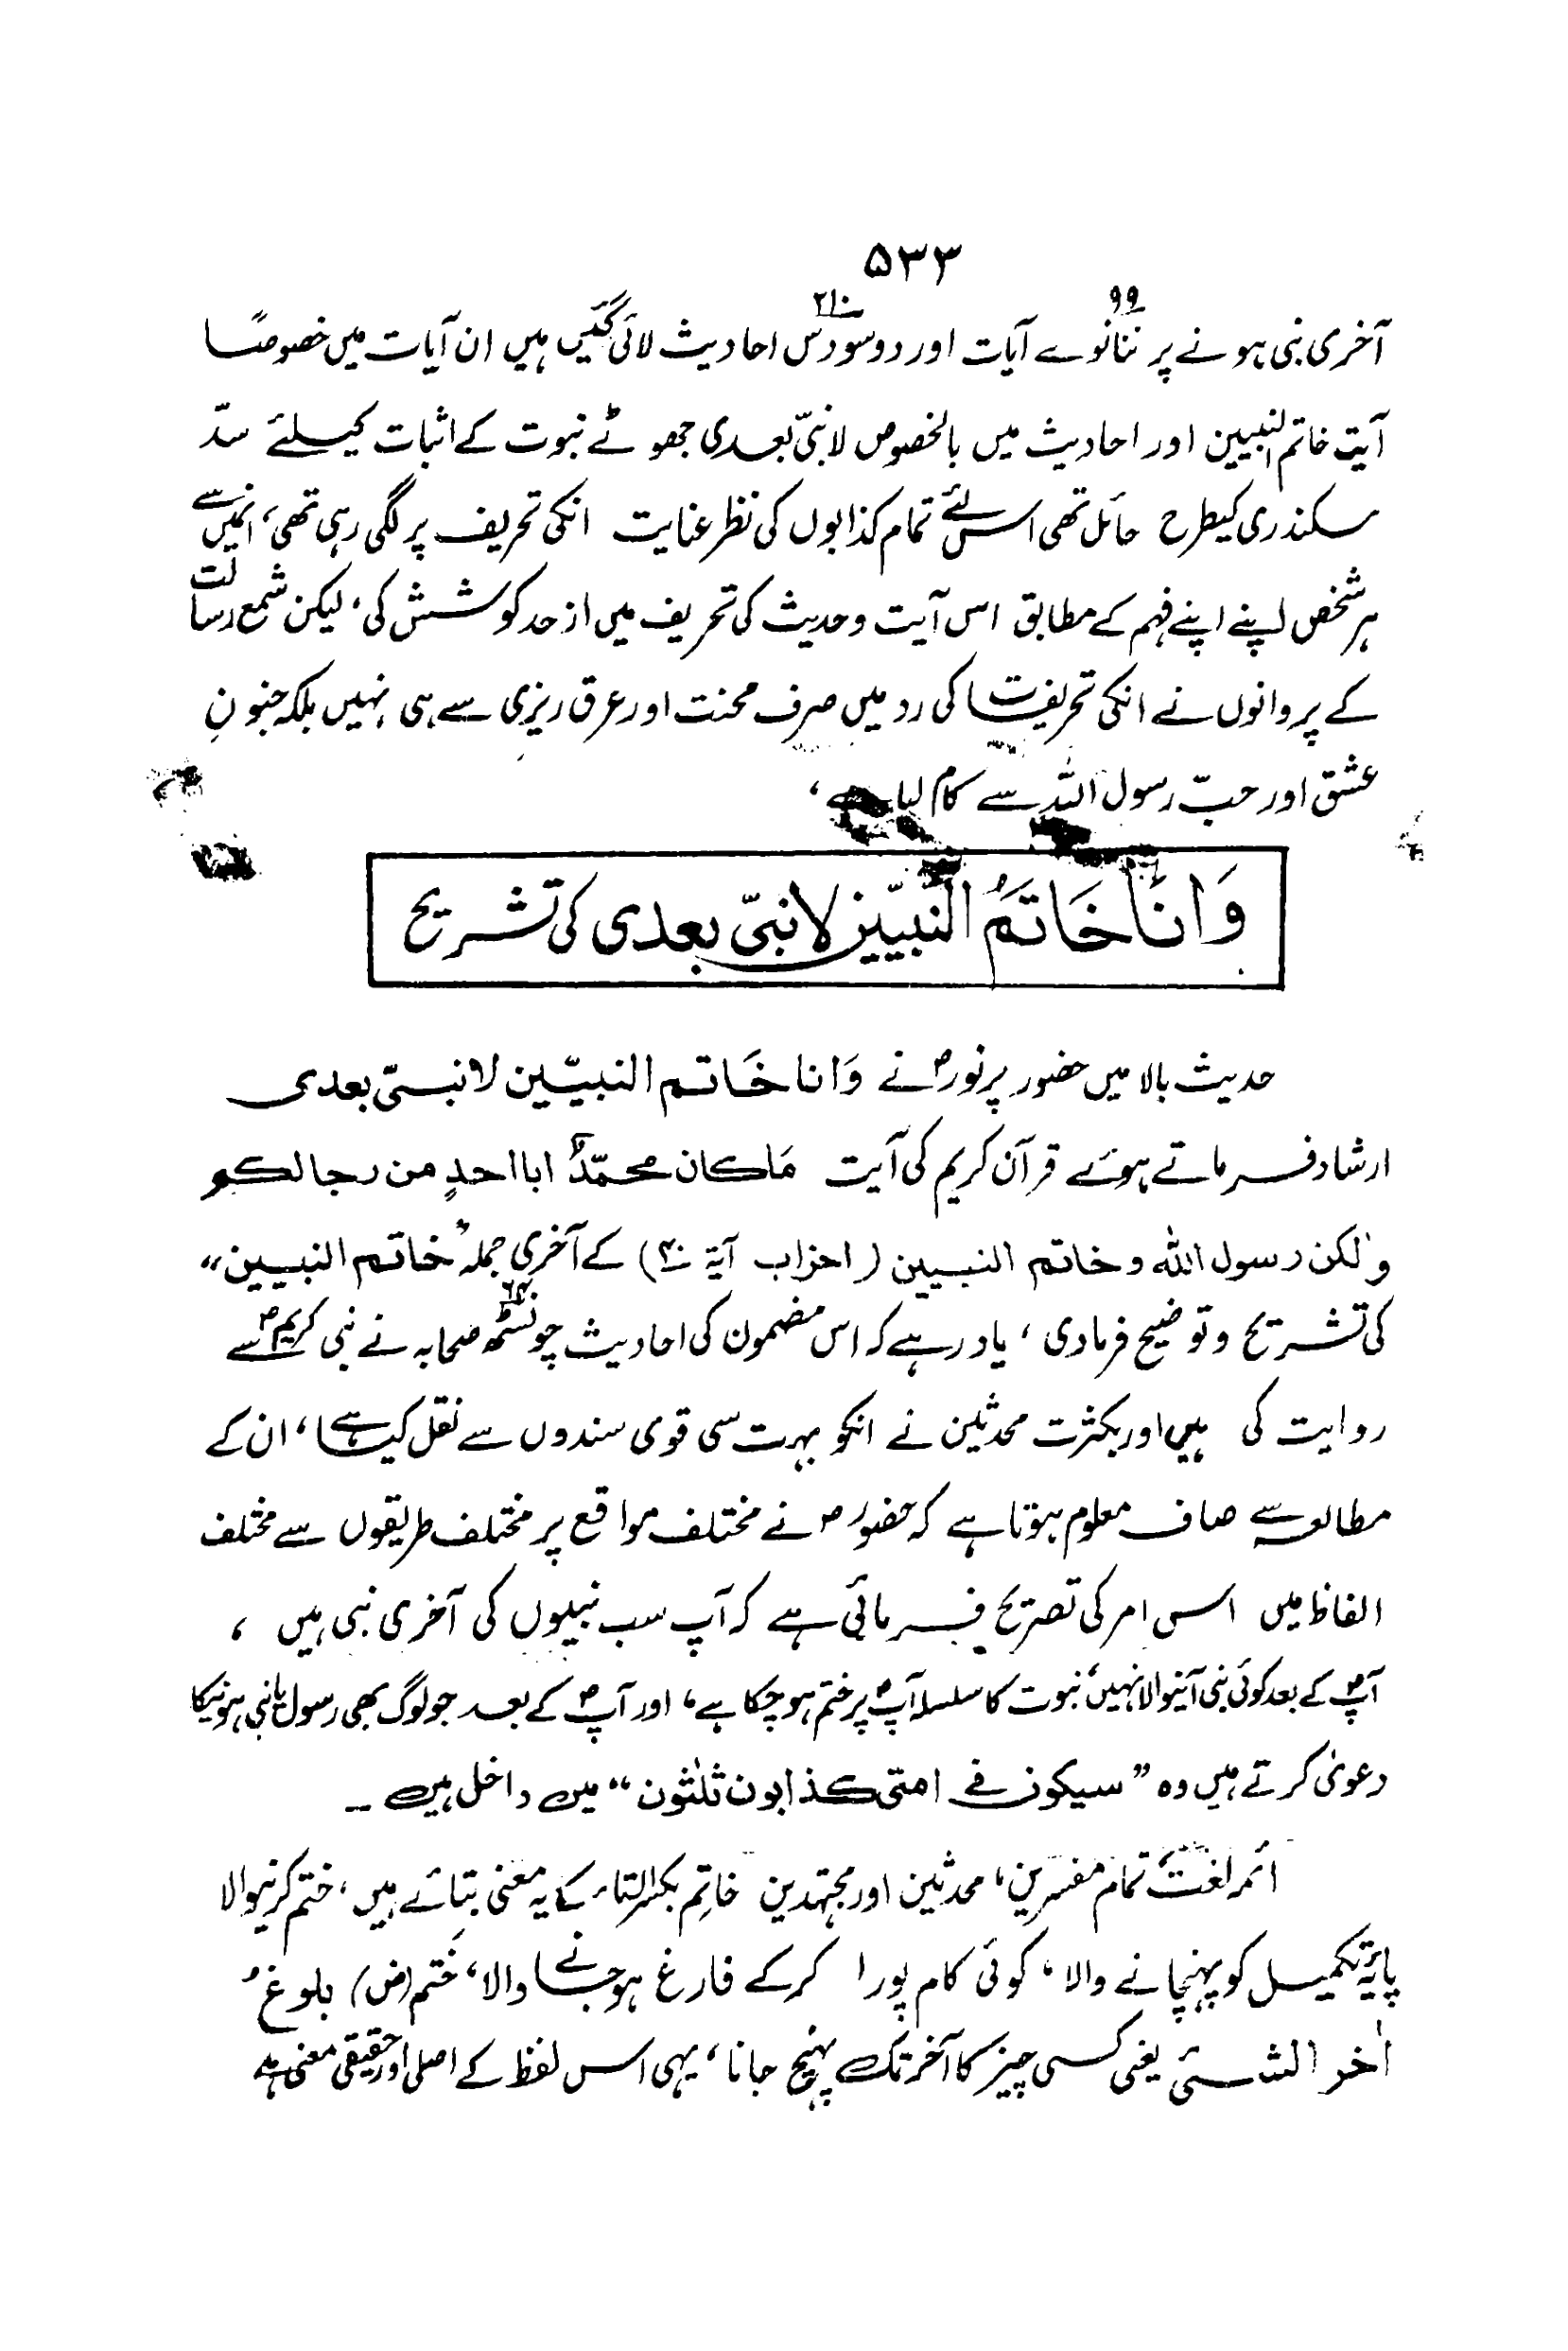 ۵۳۳
۹۹ ۲۱۰
آخری نبی ہونے پر ننانوے آیات اور دوسو دس احادیث لائی گئیں ہیں ان آیات میں خصوصًا
آیت خاتم النبیین اور احادیث میں بالخصوص لا نبیّ بعدی جھوٹے نبوت کے اثبات کیلئے سدّ
سکندری کیطرح حائل تھی اس لئے تمام کذابوں کی نظر عنایت انکی تحریف پر لگی رہی تھی، انمیں سے
ہر شخص اپنے اپنے فہم کے مطابق اس آیت و حدیث کی تحریف میں از حد کوشش کی، لیکن شمع رسالت
کے پروانوں نے انکی تحریفات کی رد میں صرف محنت اور عرق ریزی سے ہی نہیں بلکہ جنونِ
عشق اور حبّ رسول اللہ سے کام لیا ہے،
وَانَا خَاتَمُ النَّبِيّين لا نبیّ بعدی کی تشریح
حدیث بالا میں حضور پرنورؐ نے وَانا خَاتم النبيّين لا نبیّ بعدی
ارشاد فرماتے ہوئے قرآن کریم کی آیت مَا کان محمّدٌ ابا احدٍ من رجالکم
ولٰکن رسول اللہ و خاتم النبیین (احزاب آیۃ ۴۰) کے آخری جملہ "خاتم النبیین"
کی تشریح و توضیح فرمادی، یاد رہے کہ اس مضمون کی احادیث چونسٹھ ۶۴ صحابہ نے نبی کریمؐ سے
روایت کی ہیں اور بکثرت محدثین نے انکو بہت سی قوی سندوں سے نقل کیا ہے، ان کے
مطالعہ سے صاف معلوم ہوتا ہے کہ حضورؐ نے مختلف مواقع پر مختلف طریقوں سے مختلف
الفاظ میں اس امر کی تصریح فرمائی ہے کہ آپ سب نبیوں کی آخری نبی ہیں،
آپؐ کے بعد کوئی نبی آنیوالا نہیں، نبوت کا سلسلہ آپؐ پر ختم ہو چکا ہے، اور آپؐ کے بعد جو لوگ بھی رسول یا نبی ہونیکا
دعویٰ کرتے ہیں وہ "سیکون فی امتی کذابون ثلٰثون" میں داخل ہیں ــ
ائمہ لغت، تمام مفسرین، محدثین اور مجتہدین خاتِم بکسر التاء کے یہ معنی بتائے ہیں، ختم کرنیوالا
پایۂ تکمیل کو پہنچانے والا، کوئی کام پورا کرکے فارغ ہو جانے والا، خَتم (ض) بلوغُ
اٰخر الشئ یعنی کسی چیز کا آخر تک پہنچ جانا، یہی اس لفظ کے اصلی اور حقیقی معنی ہے